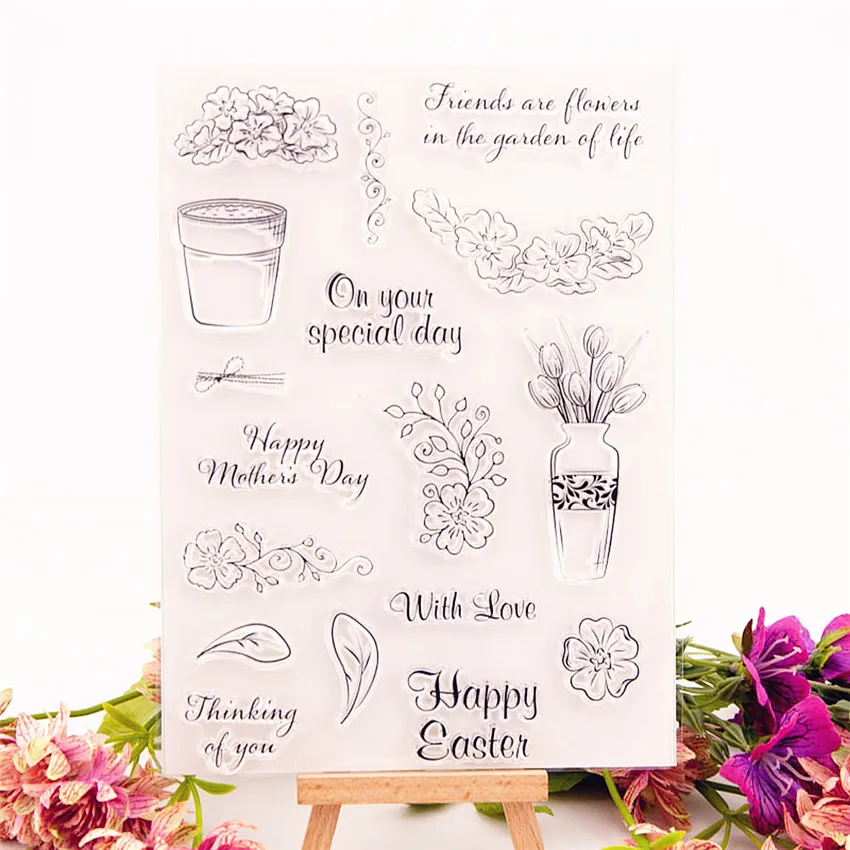 Friends are flowers
in the garden of life
On your
special day
Happy
Mother's Day
With Love
Thinking
of you
Happy
Easter